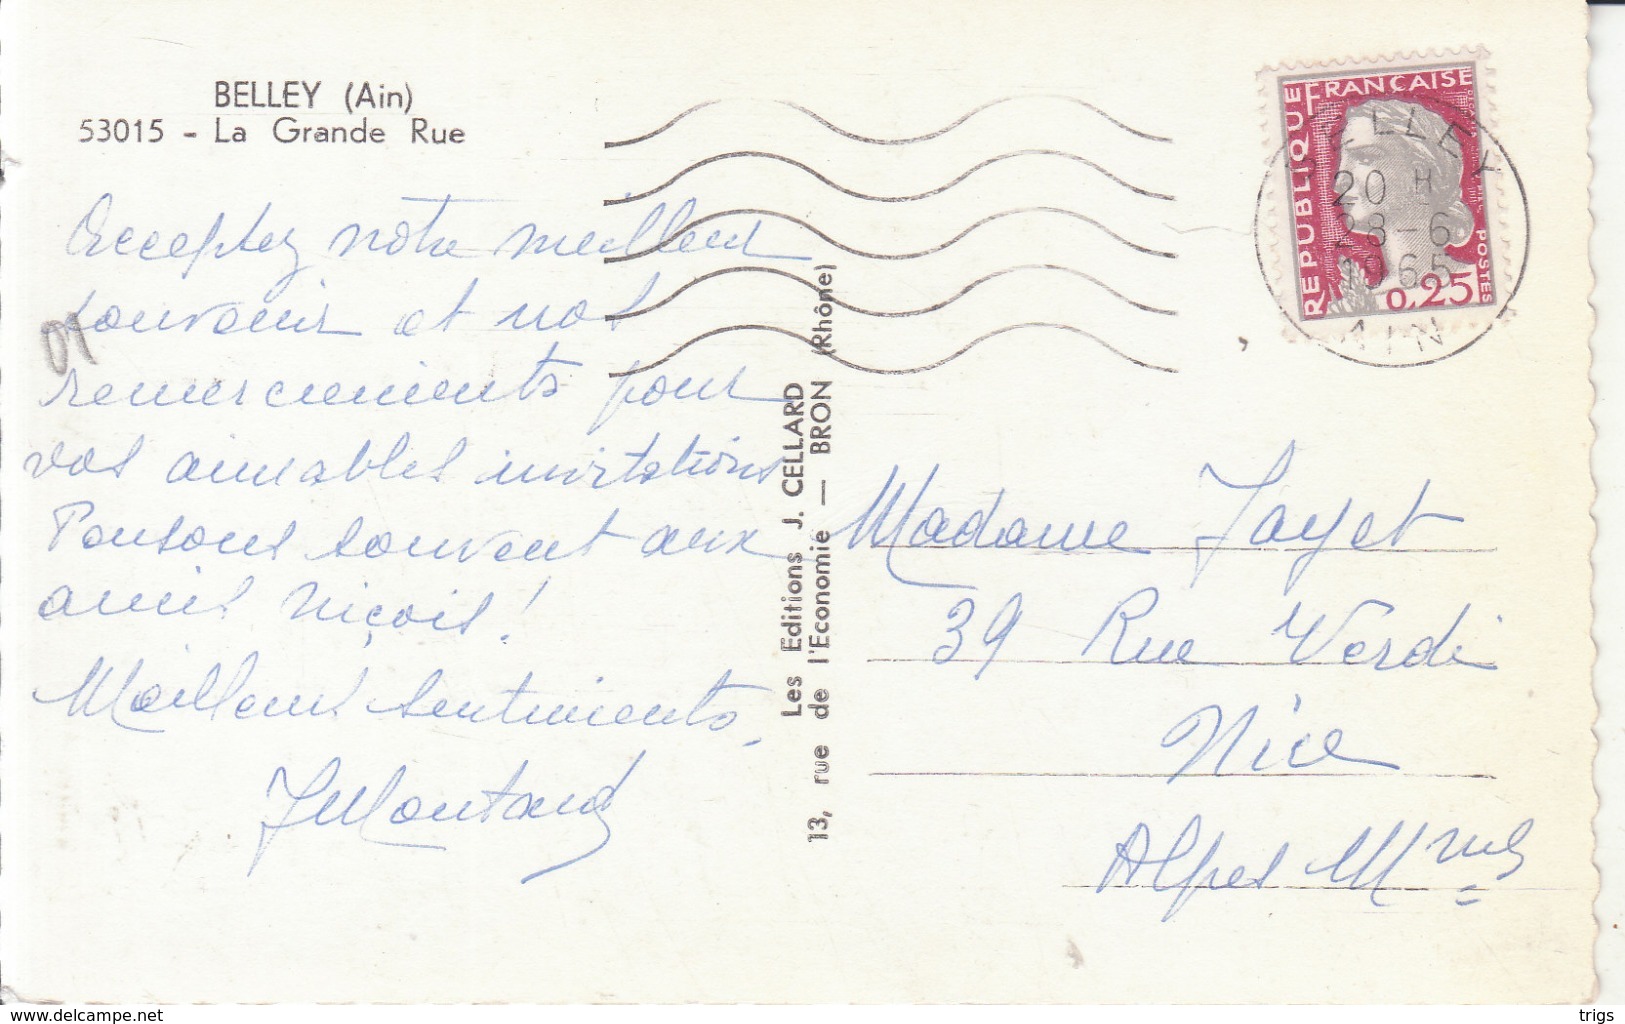 BELLEY (Ain)
53015 - La Grande Rue
Acceptez notre meilleur
souvenir et nos
remerciements pour
vos aimables invitations
Pensons souvent aux
amis niçois!
Meilleurs sentiments.
01
Les Editions J. CELLARD
13, rue de l'Economie — BRON (Rhône)
RÉPUBLIQUE FRANÇAISE
POSTES
0,25
BELLEY
20 H
28-6
1965
AIN
Madame Jayet
39 Rue Verdi
Nice
Alpes Mmes
www.delcampe.net
trigs